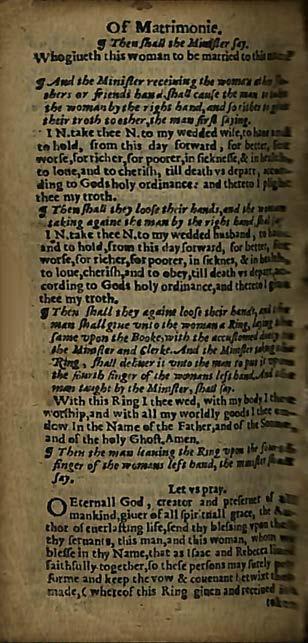 Of Matrimonie.
¶ Then shall the Minister say.
Who giueth this woman to be married to this
¶ And the Minister receiuing the woman at her fa-
thers or friends hand, shall cause the man to take
the woman by the right hand, and so either to giue
their troth to other, the man first saying.
I N. take thee N. to my wedded wife, to haue and
to hold, from this day forward, for better, for
worse, for richer, for poorer, in sicknesse, & in health,
to loue, and to cherish, till death vs depart, accor-
ding to Gods holy ordinance: and thereto I plight
thee my troth.
¶ Then shall they loose their hands, and the woman
taking againe the man by the right hand, shall say
I N. take thee N. to my wedded husband, to haue
and to hold, from this day forward, for better, for
worse, for richer, for poorer, in sicknes, & in health,
to loue, cherish, and to obey, till death vs depart, ac-
cording to Gods holy ordinance, and thereto I giue
thee my troth.
¶ Then shall they againe loose their hands, and the
man shall giue vnto the woman a Ring, laying the
same vpon the Booke, with the accustomed duty to
the Minister and Clerke. And the Minister taking the
Ring, shall deliuer it vnto the man to put it vpon
the fourth finger of the womans left hand. And the
man taught by the Minister, shall say.
With this Ring I thee wed, with my body I thee
worship, and with all my worldly goods I thee en-
dow. In the Name of the Father, and of the Sonne,
and of the holy Ghost, Amen.
¶ Then the man leauing the Ring vpon the fourth
finger of the womans left hand, the minister shall
say.
Let vs pray.
O Eternall God, creator and preseruer of all
mankind, giuer of all spirituall grace, the Au-
thor of euerlasting life, send thy blessing vpon these
thy seruants, this man, and this woman, whom we
blesse in thy Name, that as Isaac and Rebecca liued
faithfully together, so these persons may surely per-
forme and keep the vow & couenant betwixt them
made, ( whereof this Ring giuen and receiued is a